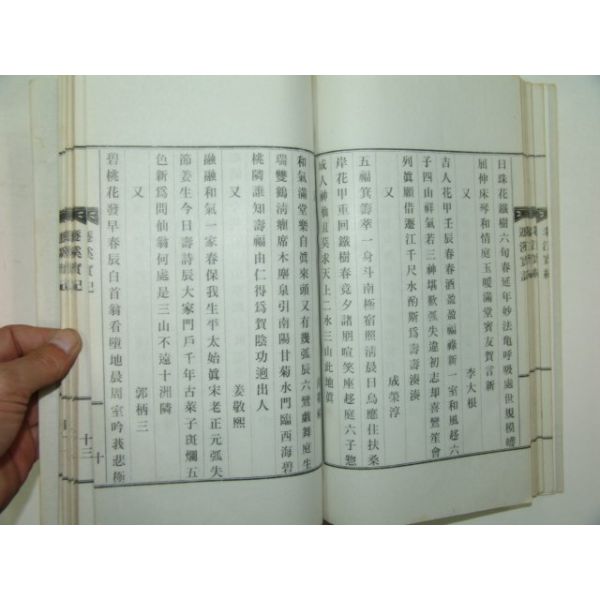 日珠花鐵樹六旬春延年妙法龜呼吸處世規模嗜
屈伸床琴和情庭玉暖滿堂賓友賀言新
又
李大根
吉人花甲壬辰春春酒盈盈福祿新一室和風趍六
子四山鮮氣若三神堪歎弧矢違初志却喜鸞笙會
列眞願借蹇江千尺水酌斯爲壽壽湊湊
又
成榮淳
五福箕籌萃一身斗南極宿照淸晨日烏應住扶桑
岸花甲重回鐵樹春竟夕諸朋喧笑座趍庭六子惣
成人神仙且莫求天上二水三山此地眞
和氣滿堂樂自眞來頭又有幾弧辰六鸞戱舞庭生
瑞雙鶴淸癯席木塵泉引南陽甘菊水門臨西海碧
桃隣誰知壽福由仁得爲賀陰功逈出人
又
姜敬熙
融融和氣一家春保我生平太始眞宋老正元弧矢
節姜生今日壽詩辰大家門戶千年古萊子斑爛五
色新爲問仙翁何處是三山不遠十洲隣
又
郭柄三
碧桃花發早春辰白首翁看墮地晨周室吟莪悲極
實記
十三
十